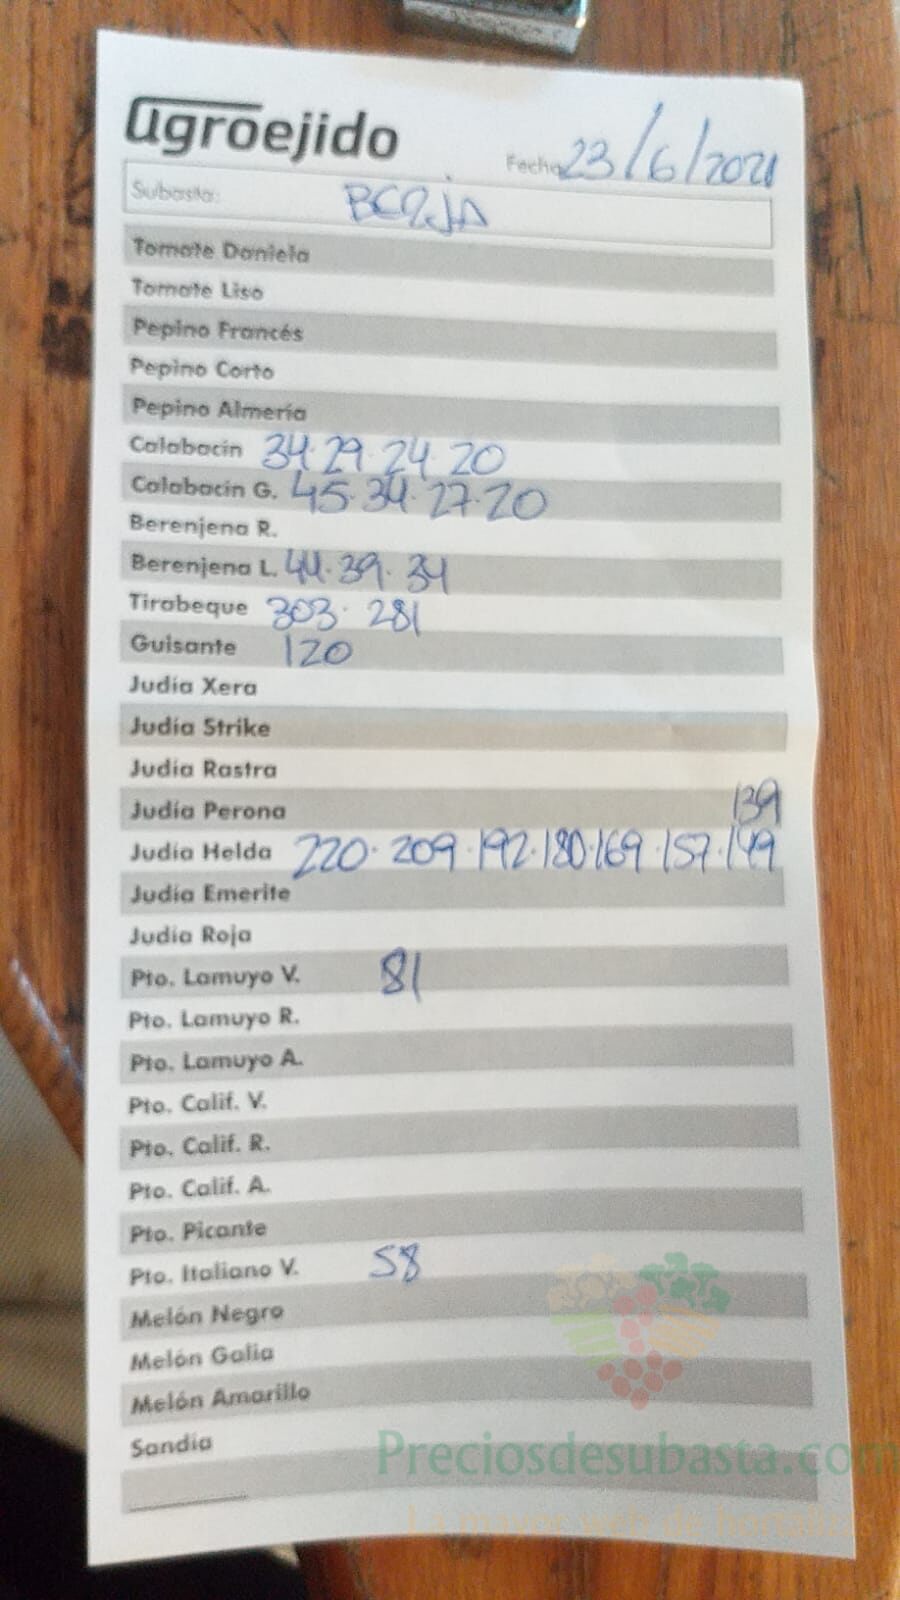 agroejido
Fecha 23/6/2021
Subasta: BERJA
Tomate Daniela
Tomate Liso
Pepino Francés
Pepino Corto
Pepino Almería
Calabacín 34·29·24·20
Calabacín G. 45·34·27·20
Berenjena R.
Berenjena L. 44·39·34
Tirabeque 303·281
Guisante 120
Judía Xera
Judía Strike
Judía Rastra
Judía Perona
139
Judía Helda 220·209·192·180·169·157·149
Judía Emerite
Judía Roja
Pto. Lamuyo V. 81
Pto. Lamuyo R.
Pto. Lamuyo A.
Pto. Calif. V.
Pto. Calif. R.
Pto. Calif. A.
Pto. Picante
Pto. Italiano V. 58
Melón Negro
Melón Galia
Melón Amarillo
Sandía
Preciosdesubasta.com
La mayor web de hortalizas